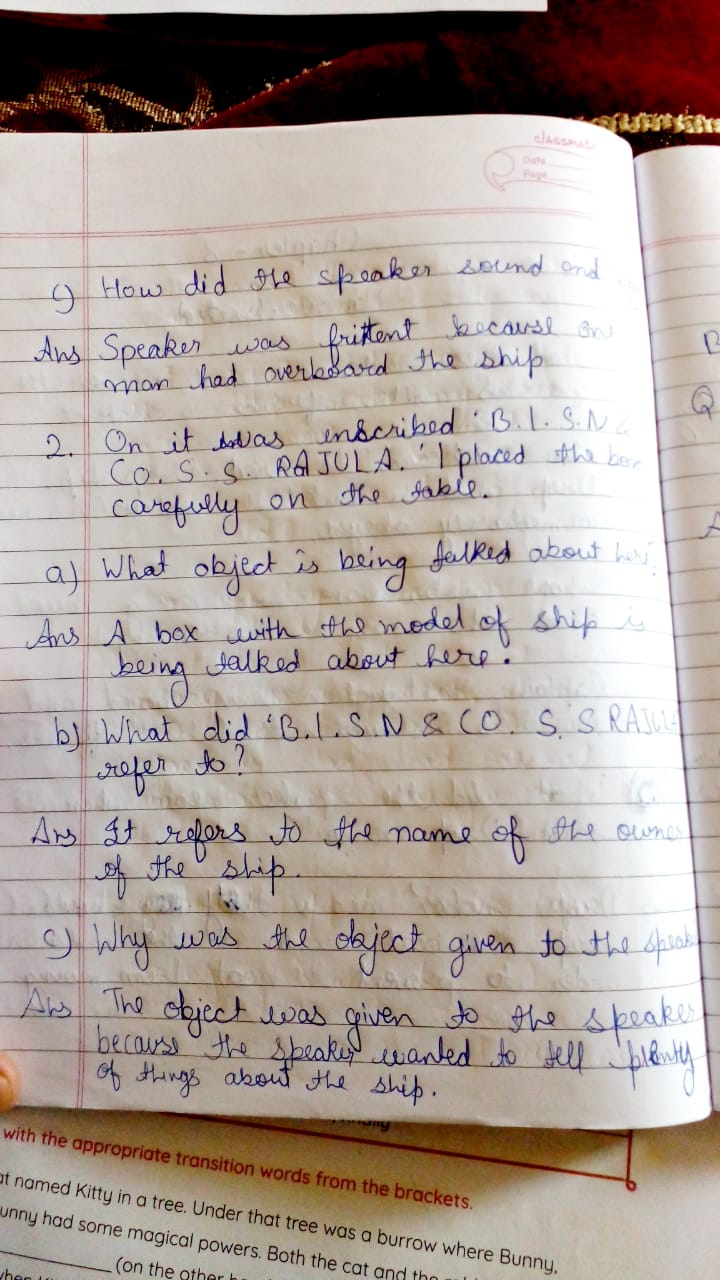 classmate
Date
Page
c) How did the speaker sound and
Ans Speaker was frittent because one
man had overboard the ship
2. On it was inscribed 'B.I.S.N &
CO. S. S. RAJULA.' I placed the box
carefully on the table.
a) What object is being talked about here?
Ans A box with the model of ship is
being talked about here.
b) What did 'B.I.S.N & CO. S. S RAJULA
refer to?
Ans It refers to the name of the owner
of the ship.
c) Why was the object given to the speaker
Ans The object was given to the speaker
because the speaker wanted to tell plenty
of things about the ship.
with the appropriate transition words from the brackets.
at named Kitty in a tree. Under that tree was a burrow where Bunny,
unny had some magical powers. Both the cat and the
(on the other